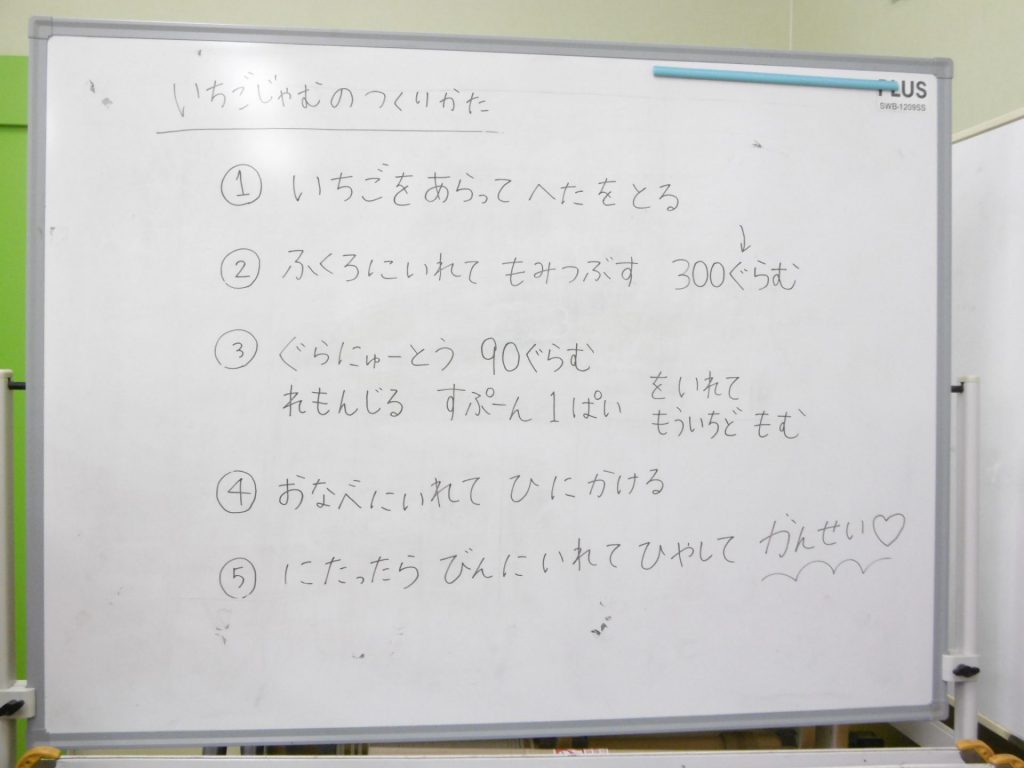 いちごじゃむのつくりかた
PLUS
SWB-1209SS
① いちごをあらって へたをとる
② ふくろにいれて もみつぶす ↓300ぐらむ
③ ぐらにゅーとう 90ぐらむ
れもんじる すぷーん 1ぱい
をいれて
もういちど もむ
④ おなべにいれて ひにかける
⑤ にたったら びんにいれて ひやして かんせい♡